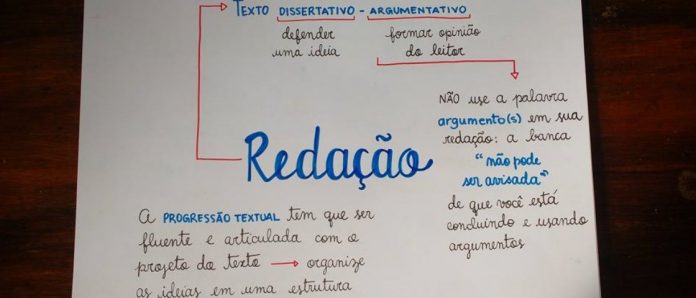 TEXTO DISSERTATIVO - ARGUMENTATIVO
defender uma ideia
formar opinião do leitor
NÃO use a palavra
argumento(s) em sua
redação: a banca
"não pode
ser avisada"
de que você está
concluindo e usando
argumentos
Redação
A PROGRESSÃO TEXTUAL tem que ser
fluente e articulada com o
projeto do texto → organize
as ideias em uma estrutura